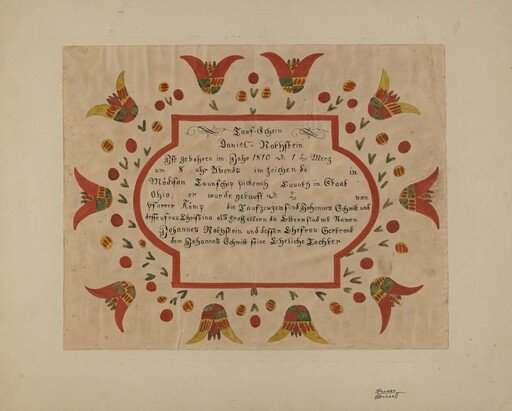 Tauf-Schein
Daniel - Rothstein
Ist gebohren im Jahr 1810 1 Merz
um 8 uhr Abends im zeichen de in
Madison Taunschip Pickewey Caunty in Staat
Ohio, er wurde getauft von
Pfarrer Kamp die Taufzeugen sind Johannes Schmit und
desse frau Christina als großeltern die Eltern sind mit Namen
Johannes Rothstein und dessen Ehefrau Gertraut
dem Johannes Schmit seine Eheliche Tochter